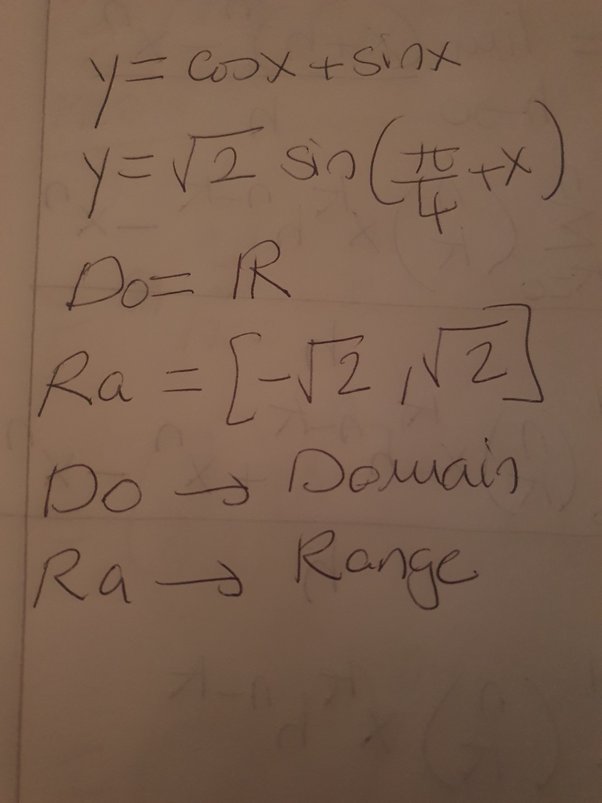 y = cosx + sinx
y = √2 sin(π/4 + x)
Do = ℝ
Ra = [-√2, √2]
Do → Domain
Ra → Range